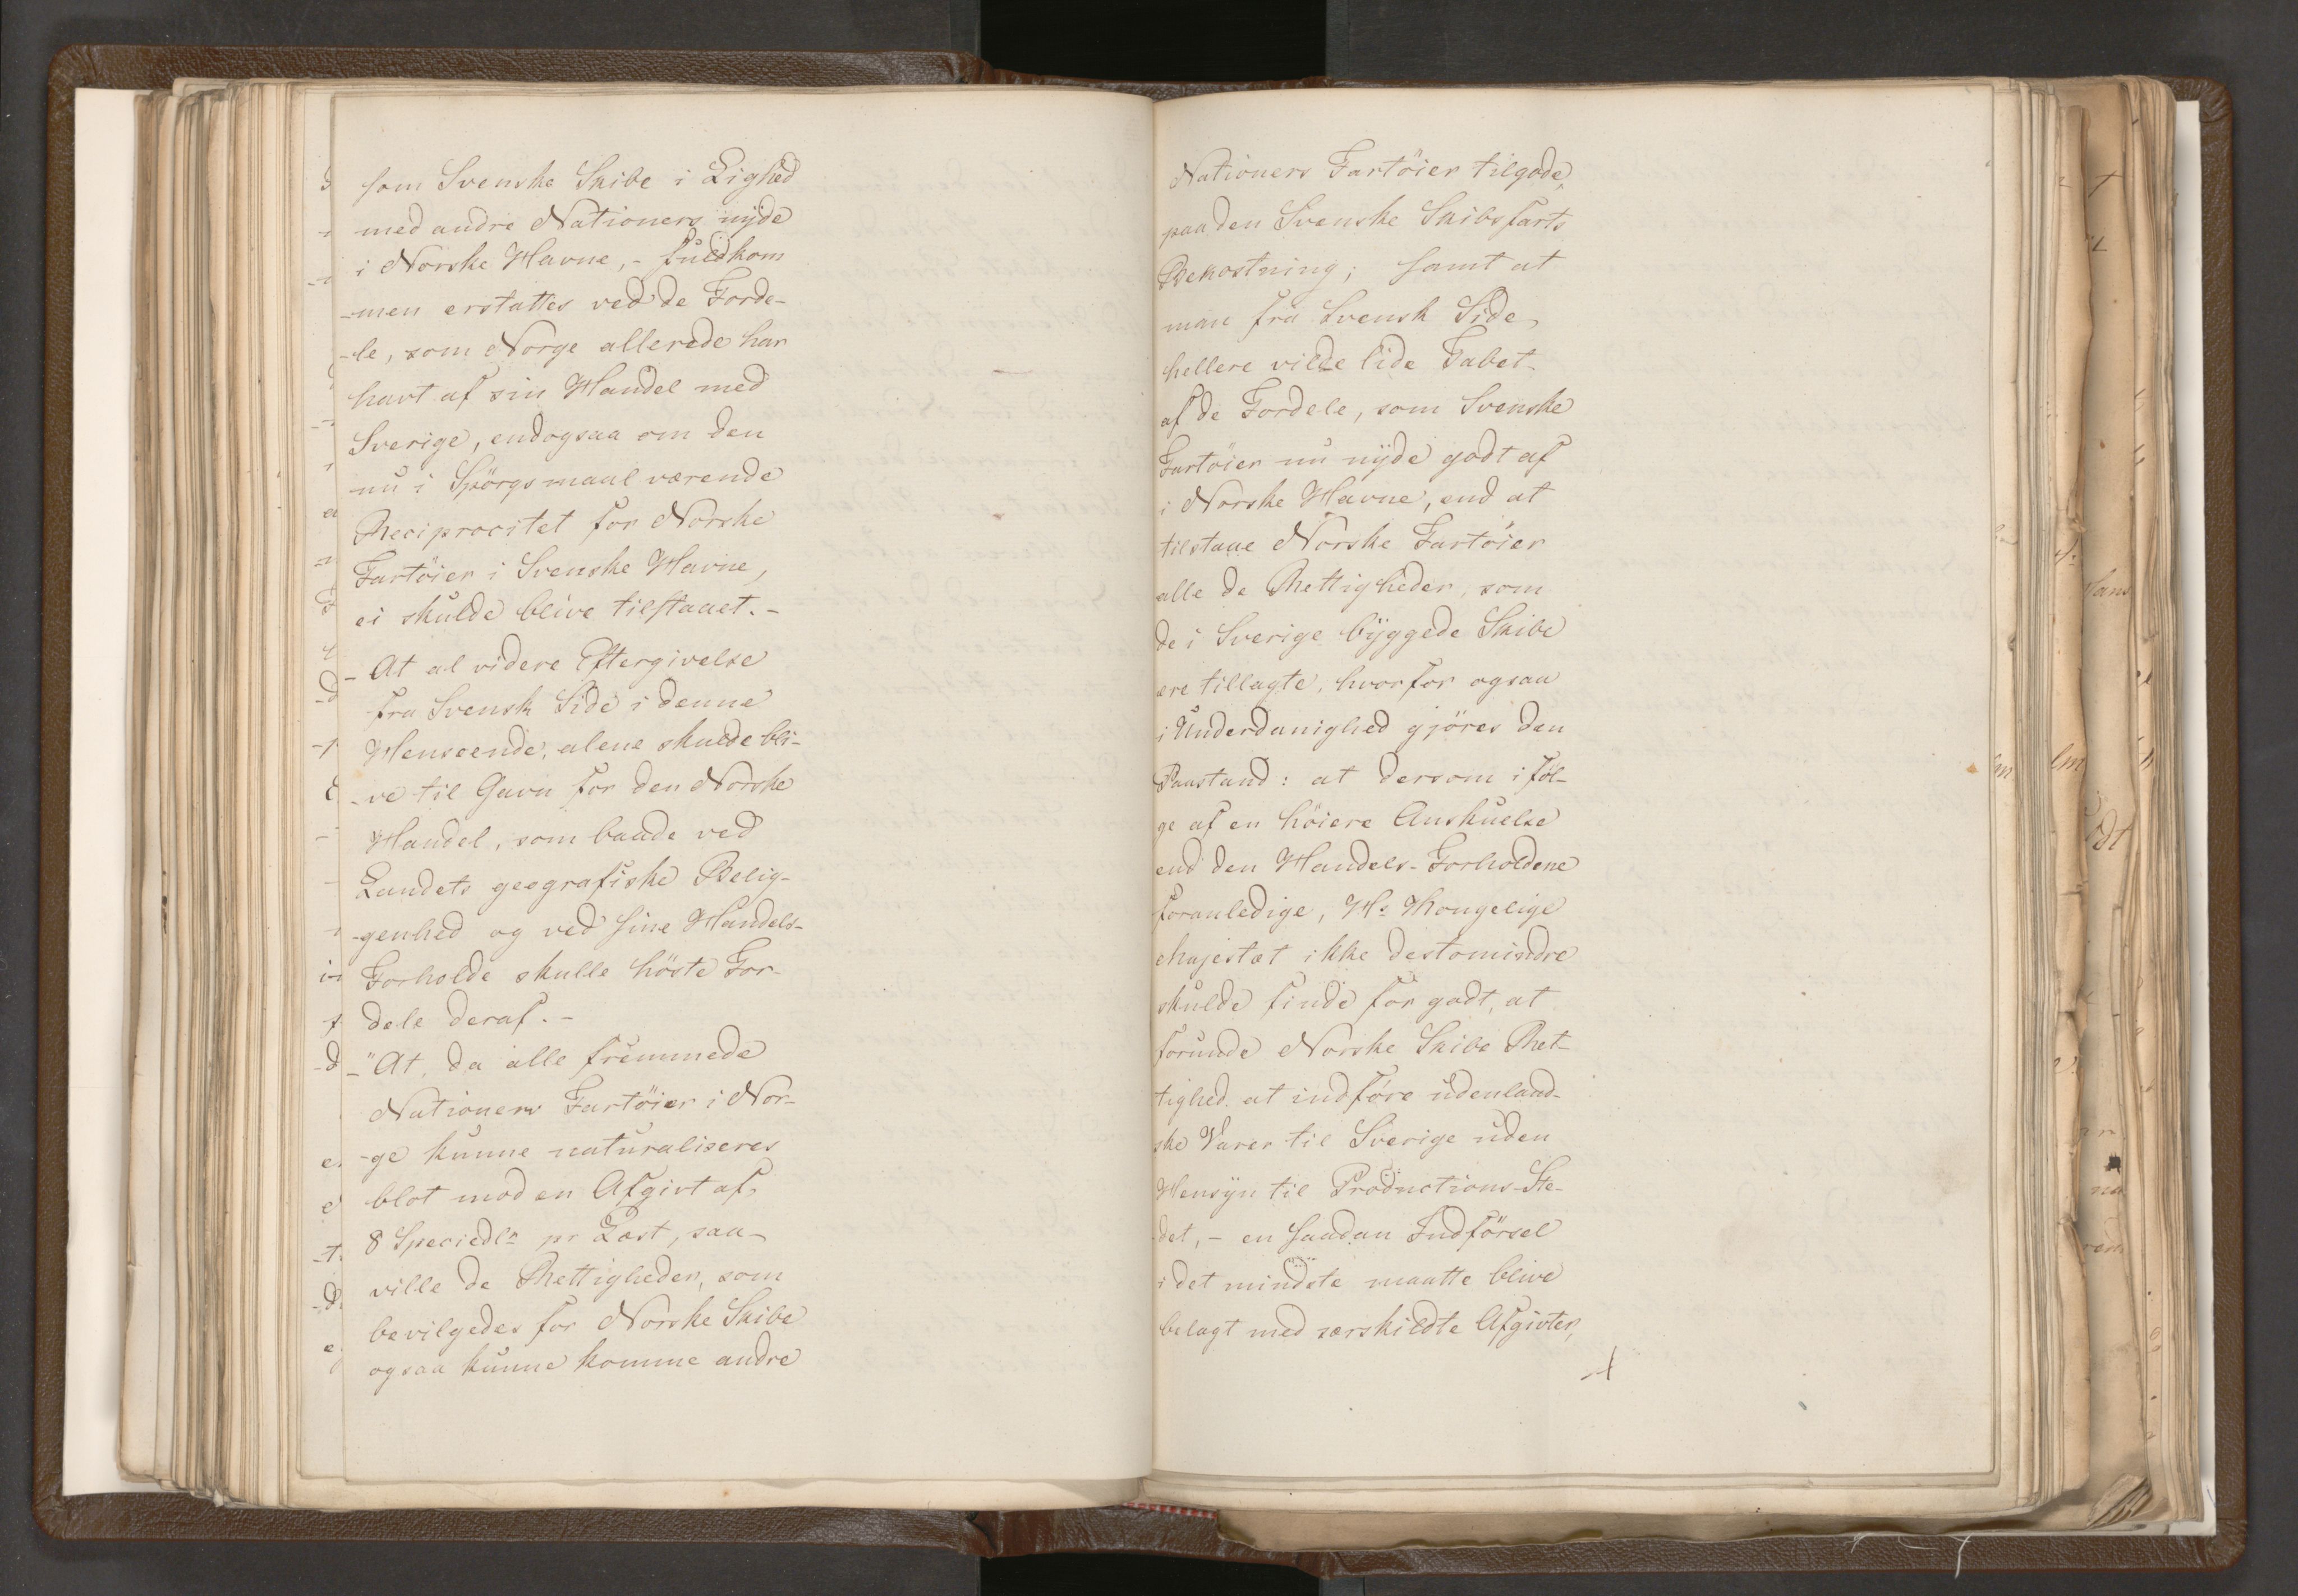 som Svenske Skibe i Lighed
med andre Nationers nyde
i Norske Havne, - fuldkom
-men erstattes ved de Forde-
-le, som Norge allerede har
havt af sin Handel med
Sverige, endogsaa om den
nu i Spörgsmaal værende
Reciprocitet for Norske
Fartöier i Svenske Havne,
ei skulde blive tilstaaet. -
- At al videre Eftergivelse
fra Svensk Side i denne
Henseende, alene skulde bli-
-ve til Gavn for den Norske
Handel, som baade ved
Landets geografiske Belig-
-genhed og ved sine Handels-
Forholde skulle höste For-
dele deraf. -
-" At, da alle fremmede
Nationers Fartöier i Nor-
-ge kunne naturaliseres
blot mod en Afgivt af
8 Speciedlr pr Læst, saa
ville de Rettigheder, som
bevilgedes for Norske Skibe
ogsaa kunne komme andre
Nationers Fartöier tilgode,
paa den Svenske Skibsfarts
Bekostning; samt at
man fra Svensk Side,
hellere vilde lide Tabet
af de Fordele, som Svenske
Fartöier nu nyde godt af
i Norske Havne, end at
tilstaae Norske Fartöier
alle de Rettigheder, som
de i Sverige byggede Skibe
ere tillagte, hvorfor ogsaa
i Underdanighed gjöres den
Paastand: at dersom i föl-
ge af en höiere Anskuelse
end den Handels-Forholdene
foranledige, Hs Kongelige
Majestæt ikke destomindre
skulde finde for godt, at
forunde Norske Skibe Ret-
tighed at indföre udenland-
ske Varer til Sverige uden
Hensyn til Productions-Ste-
det, - en saadan Indförsel
i det mindste maatte blive
belagt med særskildte Afgivter,